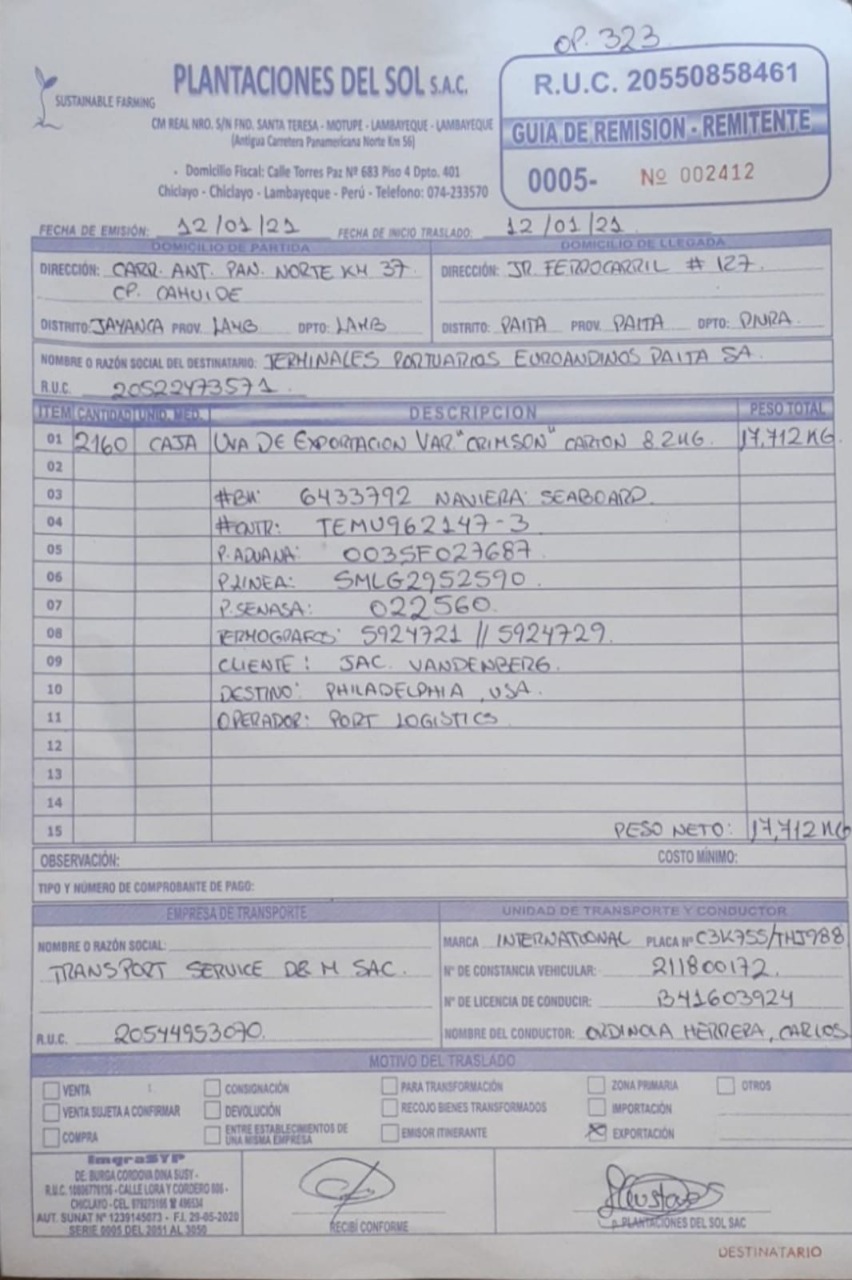 OP. 323
SUSTAINABLE FARMING
PLANTACIONES DEL SOL S.A.C.
CM REAL NRO. S/N FND. SANTA TERESA - MOTUPE - LAMBAYEQUE - LAMBAYEQUE
(Antigua Carretera Panamericana Norte Km 56)
• Domicilio Fiscal: Calle Torres Paz Nº 683 Piso 4 Dpto. 401
Chiclayo - Chiclayo - Lambayeque - Perú - Telefono: 074-233570
R.U.C. 20550858461
GUIA DE REMISION - REMITENTE
0005- Nº 002412
FECHA DE EMISIÓN: 12/01/21 FECHA DE INICIO TRASLADO: 12/01/21
DOMICILIO DE PARTIDA
DIRECCIÓN: CARR. ANT. PAN. NORTE KM 37.
CP. CAHUIDE
DISTRITO: JAYANCA PROV. LAMB DPTO: LAMB
DOMICILIO DE LLEGADA
DIRECCIÓN: JR. FERROCARRIL # 127.
DISTRITO: PAITA PROV. PAITA DPTO: PIURA.
NOMBRE O RAZÓN SOCIAL DEL DESTINATARIO: TERMINALES PORTUARIOS EUROANDINOS PAITA SA.
R.U.C. 20522473571.
ITEM CANTIDAD UNID. MED. DESCRIPCION PESO TOTAL
01 2160 CAJA UVA DE EXPORTACION VAR. "CRIMSON" CARTON 8.2KG. 17,712 KG
02
03 #BK: 6433792 NAVIERA: SEABOARD.
04 #CNTR: TEMU962147-3
05 P. ADUANA: 003SF027687.
06 P. LINEA: SMLG2952590.
07 P. SENASA: 022560.
08 TERMOGRAFOS: 5924721 // 5924729.
09 CLIENTE: JAC. VANDENBERG.
10 DESTINO: PHILADELPHIA, USA.
11 OPERADOR: PORT LOGISTICS
12
13
14
15 PESO NETO: 17,712 KG
OBSERVACIÓN: COSTO MÍNIMO:
TIPO Y NÚMERO DE COMPROBANTE DE PAGO:
EMPRESA DE TRANSPORTE
NOMBRE O RAZÓN SOCIAL:
TRANSPORT SERVICE D&M SAC.
R.U.C. 20544953070.
UNIDAD DE TRANSPORTE Y CONDUCTOR
MARCA INTERNATIONAL PLACA Nº C3K755/THJ988
Nº DE CONSTANCIA VEHICULAR: 211800172.
Nº DE LICENCIA DE CONDUCIR: B41603924
NOMBRE DEL CONDUCTOR: ORDINOLA HERRERA, CARLOS
MOTIVO DEL TRASLADO
VENTA CONSIGNACIÓN PARA TRANSFORMACIÓN ZONA PRIMARIA OTROS
VENTA SUJETA A CONFIRMAR DEVOLUCIÓN RECOJO BIENES TRANSFORMADOS IMPORTACIÓN
COMPRA ENTRE ESTABLECIMIENTOS DE UNA MISMA EMPRESA EMISOR ITINERANTE X EXPORTACIÓN
ImgraSYP
DE: BURGA CORDOVA DINA SUSY -
CALLE LORA Y CORDERO
CHICLAYO - CEL.
AUT. SUNAT Nº 1239145073 - F.I. 29-05-2020
SERIE 0005 DEL 2051 AL 3050
RECIBÍ CONFORME
p. PLANTACIONES DEL SOL SAC
DESTINATARIO